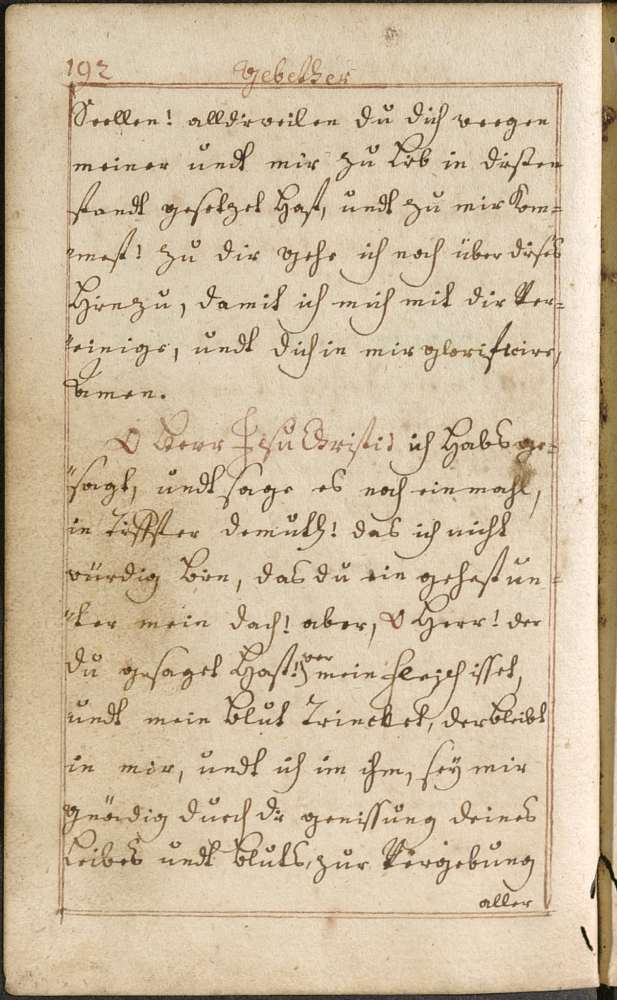 192 Gebether
Seellen! alldieweilen du dich weegen
meiner undt mir zu Lieb in disten
standt gesetzet hast, undt zu mir kom=
mest! zu dir gehe ich noch über dises
Hinzu, damit ich mich mit dir Ver=
einige, undt dich in mir glorificire,
Amen.
O Herr Jesu Christi! ich habs ge=
sagt, undt sage es noch ein mahl,
in Tieffster demuth! das ich nicht
würdig bin, das du ein gehest un=
ter mein dach! aber, O Herr! der
du gesaget hast! wer mein fleisch isset,
undt mein Blut Trincket, der bleibt
in mir, undt ich im ihm, sey mir
gnädig durch die geniessung deines
Leibes undt Bluts, zur Vergebung
aller